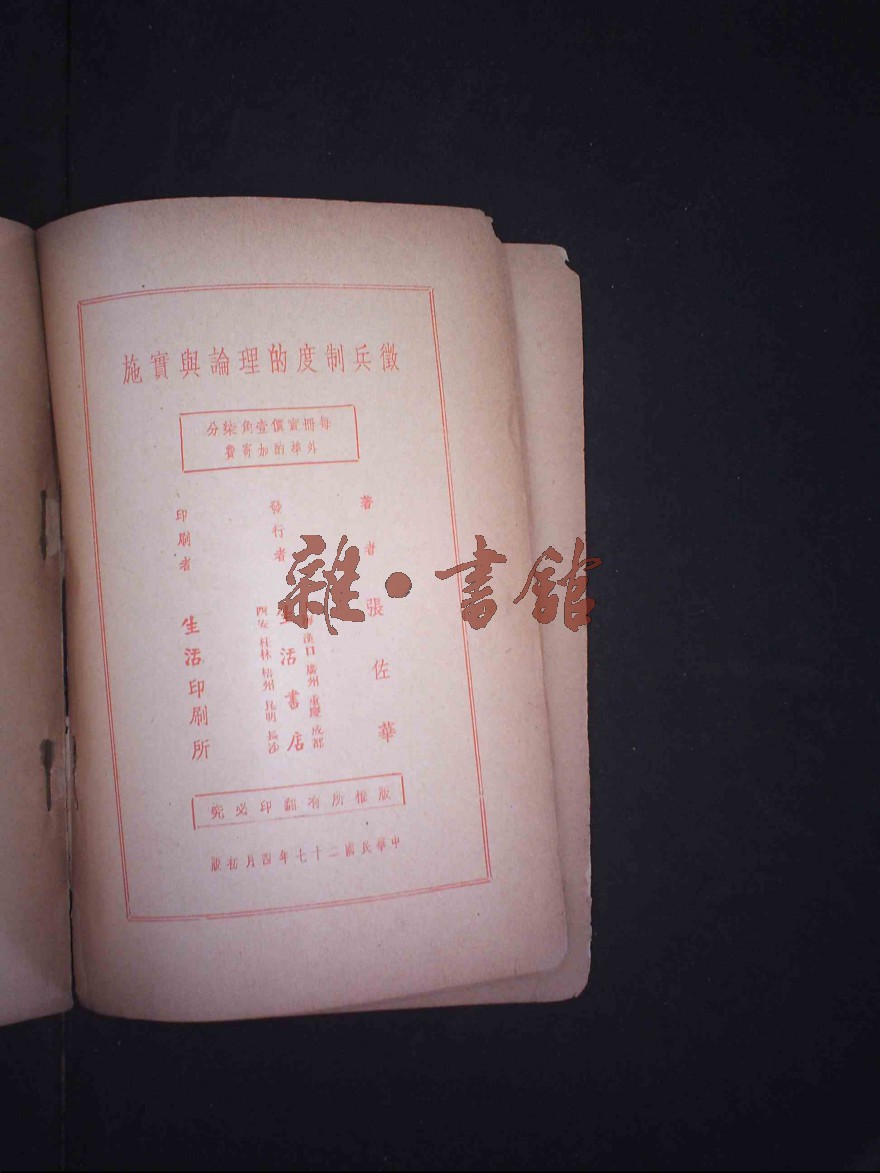 徵兵制度的理論與實施
每冊實價壹角柒分
外埠酌加寄費
著者 張佐華
發行者 生活書店
漢口 廣州 重慶 成都
西安 桂林 梧州 昆明 長沙
印刷者 生活印刷所
版權所有翻印必究
中華民國二十七年四月初版
雜·書館